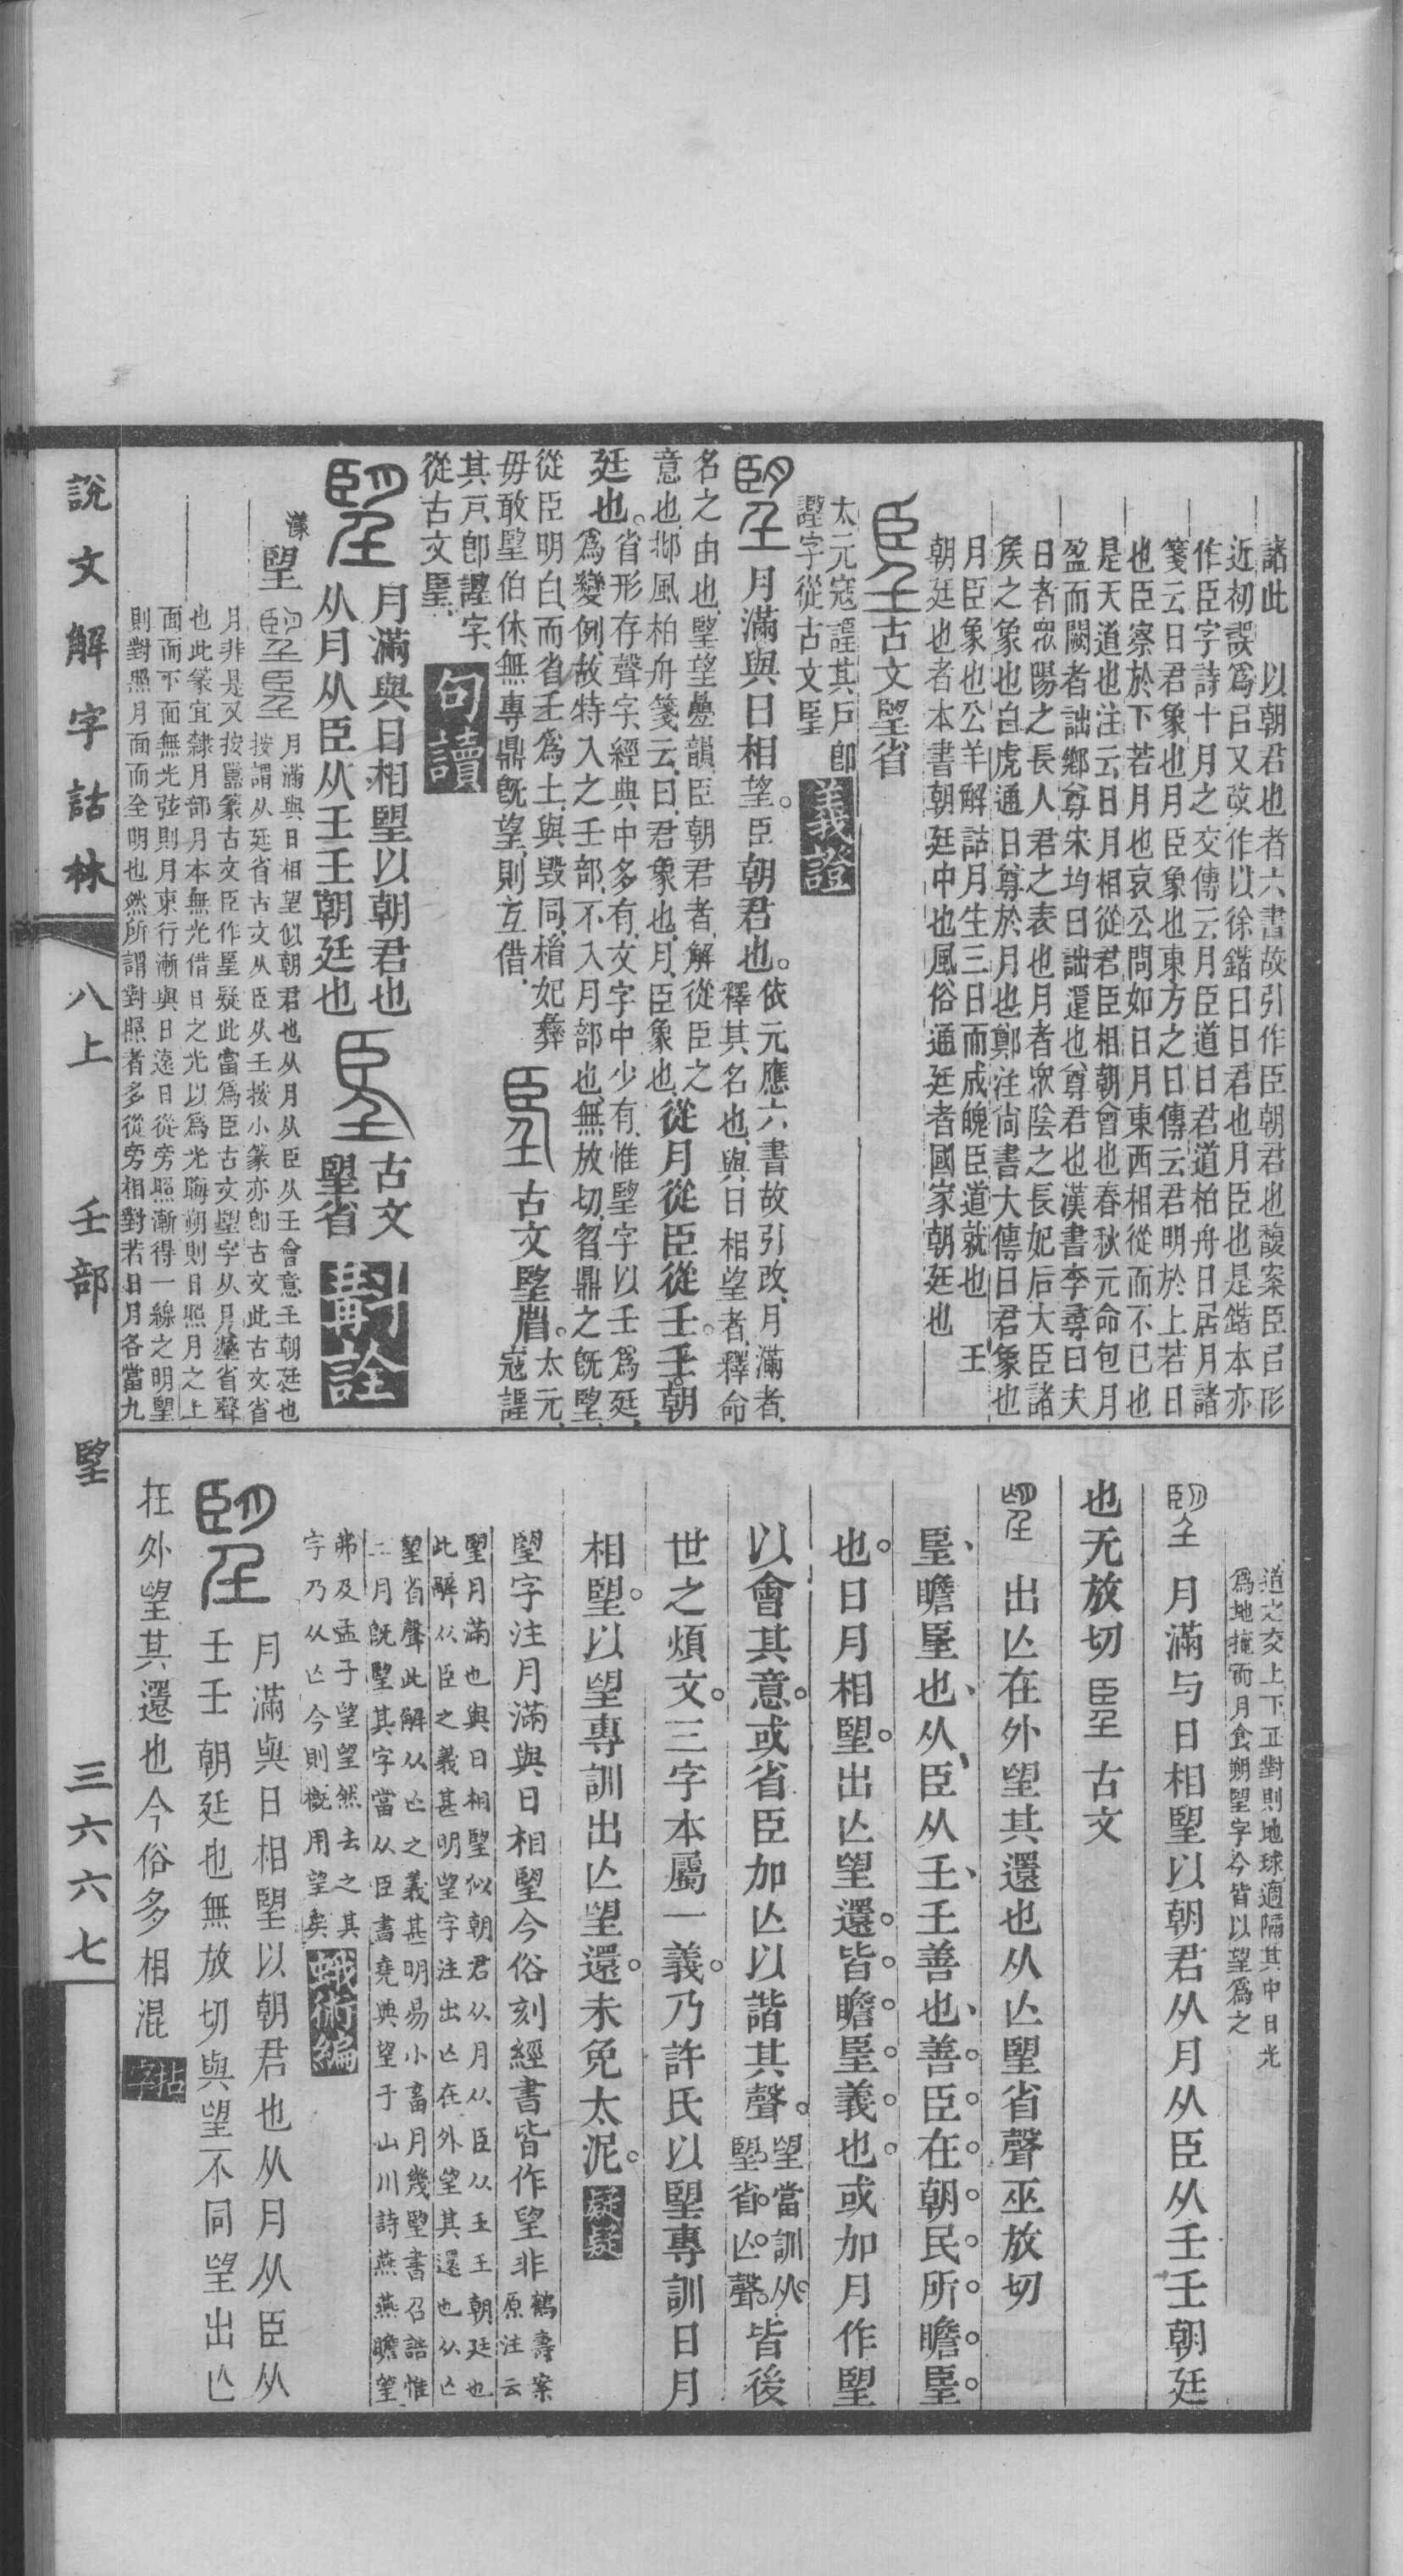 諸此　以朝君也者六書故引作臣朝君也馥案臣㠯形
近初誤爲㠯又改作以徐鍇曰日君也月臣也是鍇本亦
作臣字詩十月之交傳云月臣道日君道柏舟日居月諸
箋云日君象也月臣象也東方之日傳云君明於上若日
也臣察於下若月也哀公問如日月東西相從而不已也
是天道也注云日月相從君臣相朝會也春秋元命包月
盈而闕者詘鄉尊宋均曰詘還也尊君也漢書李尋曰夫
日者眾陽之長人君之表也月者眾陰之長妃后大臣諸
矦之象也白虎通日尊於月也鄭注尙書大傳曰君象也
月臣象也公羊解詁月生三日而成魄臣道就也　王
朝廷也者本書朝廷中也風俗通廷者國家朝廷也
古文朢省
太元寇謹其戸卽
謹字從古文𦣠
義證
月滿與日相望。臣朝君也。依元應六書故引改、月滿者、
釋其名也、與日相望者、釋命
名之由也、朢望疊韻、臣朝君者、解從臣之
意也、邶風柏舟箋云、日、君象也、月、臣象也、從月從臣從𡈼。𡈼、朝
廷也。省形存聲字、經典中多有、文字中少有、惟朢字以𡈼爲廷、
爲變例、故特入之𡈼部、不入月部也、無放切、曶鼎之旣朢、
從臣明白、而省𡈼爲土、與毀同、楷妃彝
毋敢朢伯休、無專鼎旣望、則互借、
古文朢省。太元、
寇謹
其戸、卽謹字、
從古文𦣠、
句讀
月滿與日相朢以朝君也
从月从臣从𡈼𡈼朝廷也
古文
朢省
斠詮
漾
朢
月滿與日相望似朝君也从月从臣从𡈼會意𡈼朝廷也
按謂从廷省古文从臣从𡈼按小篆亦卽古文此古文省
月非是又按嚚篆古文臣作𦣠疑此當爲臣古文朢字从月𦣠省聲
也此篆宜隸月部月本無光借日之光以爲光晦朔則日照月之上
面而下面無光弦則月東行漸與日遠日從旁照漸得一線之明朢
則對照月面而全明也然所謂對照者多從旁相對若日月各當九
道之交上下正對則地球適隔其中日光
爲地掩而月食朔朢字今皆以望爲之
月滿与日相朢以朝君从月从臣从𡈼𡈼朝廷
也无放切　古文
出亾在外望其還也从亾朢省聲巫放切
𦣠、瞻𦣠也、从臣从𡈼、𡈼善也、善臣在朝民所瞻𦣠
也。日月相朢。出亾望還。皆瞻𦣠義也。或加月作朢
以會其意。或省臣加亾以諧其聲。望當訓从
朢省亾聲。皆後
世之煩文。三字本屬一義。乃許氏以朢專訓日月
相朢。以望專訓出亾望還。未免太泥。疑疑
朢字注月滿與日相朢今俗刻經書皆作望非鶴壽案
原注云
朢月滿也與日相朢似朝君从月从臣从𡈼𡈼朝廷也
此解从臣之義甚明望字注出亾在外望其還也从亾
朢省聲此解从亾之義甚明易小畜月幾朢書召誥惟
二月旣朢其字當从臣書堯典望于山川詩燕燕瞻望
弗及孟子望望然去之其
字乃从亾今則槪用望矣
蛾術編
月滿與日相朢以朝君也从月从臣从
𡈼𡈼朝廷也無放切與望不同望出亾
在外望其還也今俗多相混
拈字
說文解字詁林　八上　𡈼部　朢　三六六七